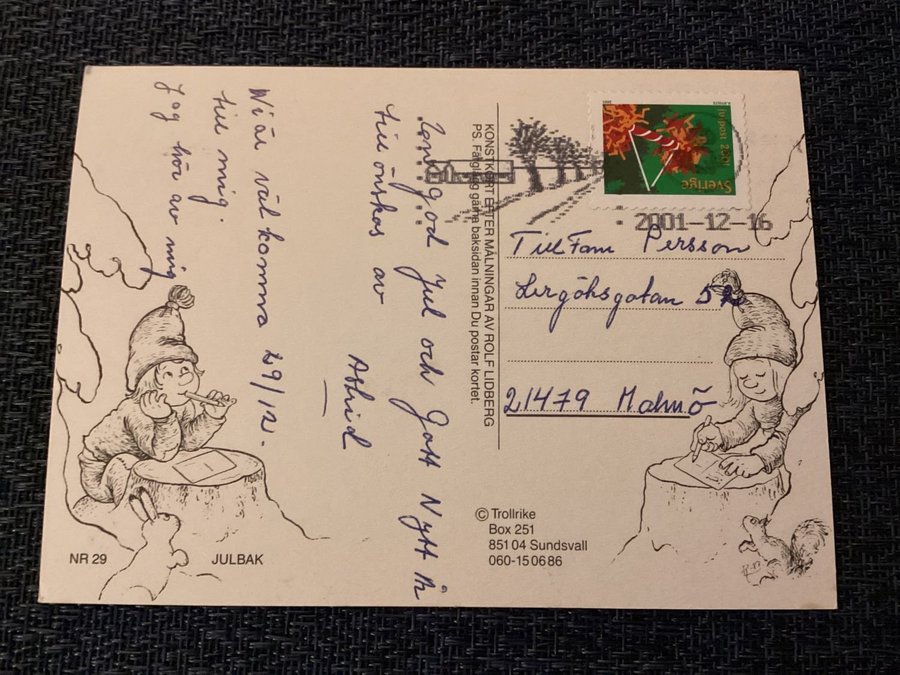 En god Jul och Gott Nytt År
tillönskas av
Astrid
Ni är välkomna 29/12.
till mig.
Jag hör av mig
KONSTKORT EFTER MÅLNINGAR AV ROLF LIDBERG
PS. Färglägg gärna baksidan innan Du postar kortet.
julpost 2001
Sverige
2001-12-16
Till Fam Persson
Lergöksgatan
21479 Malmö
© Trollrike
Box 251
851 04 Sundsvall
060-15 06 86
NR 29 JULBAK